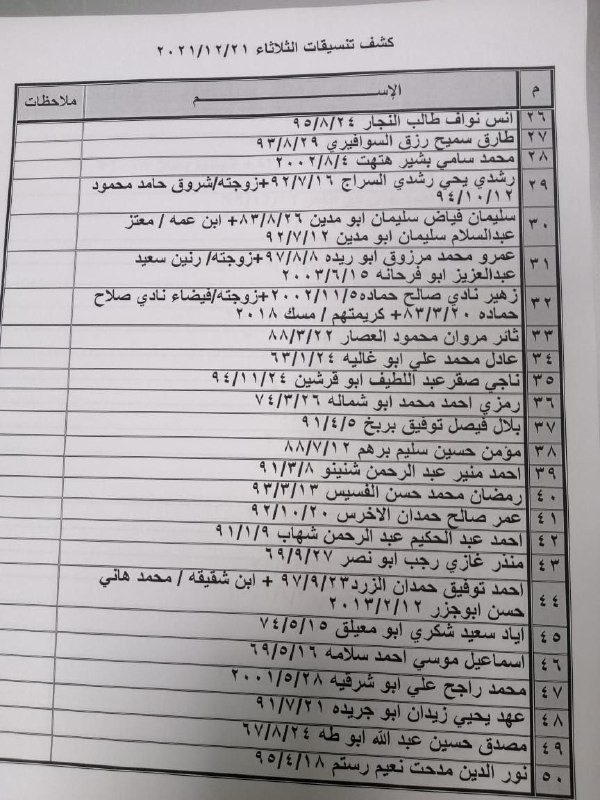 كشف تنسيقات الثلاثاء ٢٠٢١/١٢/٢١
م الإســـــــــم ملاحظات
٢٦ انس نواف طالب النجار ٩٥/٨/٢٤
٢٧ طارق سميح رزق السوافيري ٩٣/٨/٢٩
٢٨ محمد سامي بشير هتهت ٢٠٠٢/٨/٤
٢٩ رشدي يحي رشدي السراج ٩٢/٧/١٦+زوجته/شروق حامد محمود
٩٤/١٠/١٢
٣٠ سليمان فياض سليمان ابو مدين ٨٣/٨/٢٦+ ابن عمه / معتز
عبدالسلام سليمان ابو مدين ٩٢/٧/١٢
٣١ عمرو محمد مرزوق ابو ريده ٩٧/٨/٨+زوجته/ رنين سعيد
عبدالعزيز ابو فرحانه ٢٠٠٣/٦/١٥
٣٢ زهير نادي صالح حماده ٢٠٠٢/١١/٥+زوجته/فيضاء نادي صلاح
حماده ٨٣/٣/٢٠+ كريمتهم / مسك ٢٠١٨
٣٣ ثائر مروان محمود العصار ٨٨/٣/٢٢
٣٤ عادل محمد علي ابو غاليه ٦٣/١/٢٤
٣٥ ناجي صقرعبد اللطيف ابو قرشين ٩٤/١١/٢٤
٣٦ رمزي احمد محمد ابو شماله ٧٤/٣/٢٦
٣٧ بلال فيصل توفيق بربخ ٩١/٤/٥
٣٨ مؤمن حسين سليم برهم ٨٨/٧/١٢
٣٩ احمد منير عبد الرحمن شنينو ٩١/٣/٨
٤٠ رمضان محمد حسن الفسيس ٩٣/٣/١٣
٤١ عمر صالح حمدان الاخرس ٩٢/١٠/٢٠
٤٢ احمد عبد الحكيم عبد الرحمن شهاب ٩١/١/٩
٤٣ منذر غازي رجب ابو نصر ٦٩/٩/٢٧
٤٤ احمد توفيق حمدان الزرد٩٧/٩/٢٣ + ابن شقيقه / محمد هاني
حسن ابوجزر ٢٠١٣/٢/١٢
٤٥ اياد سعيد شكري ابو معيلق ٧٤/٥/١٥
٤٦ اسماعيل موسي احمد سلامه ٦٩/٥/١٦
٤٧ محمد راجح علي ابو شرفيه ٢٠٠١/٥/٢٨
٤٨ عهد يحيي زيدان ابو جريده ٩١/٧/٢١
٤٩ مصدق حسين عبد الله ابو طه ٦٧/٨/٢٤
٥٠ نور الدين مدحت نعيم رستم ٩٥/٤/١٨